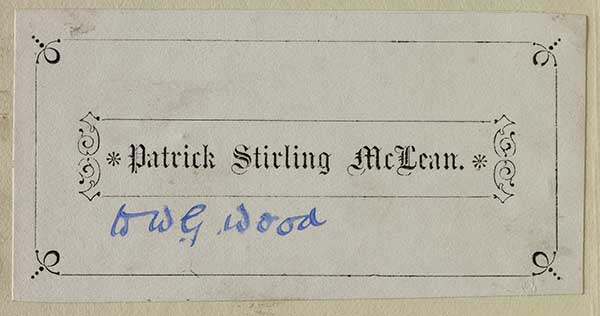 * Patrick Stirling McLean. *
W G Wood